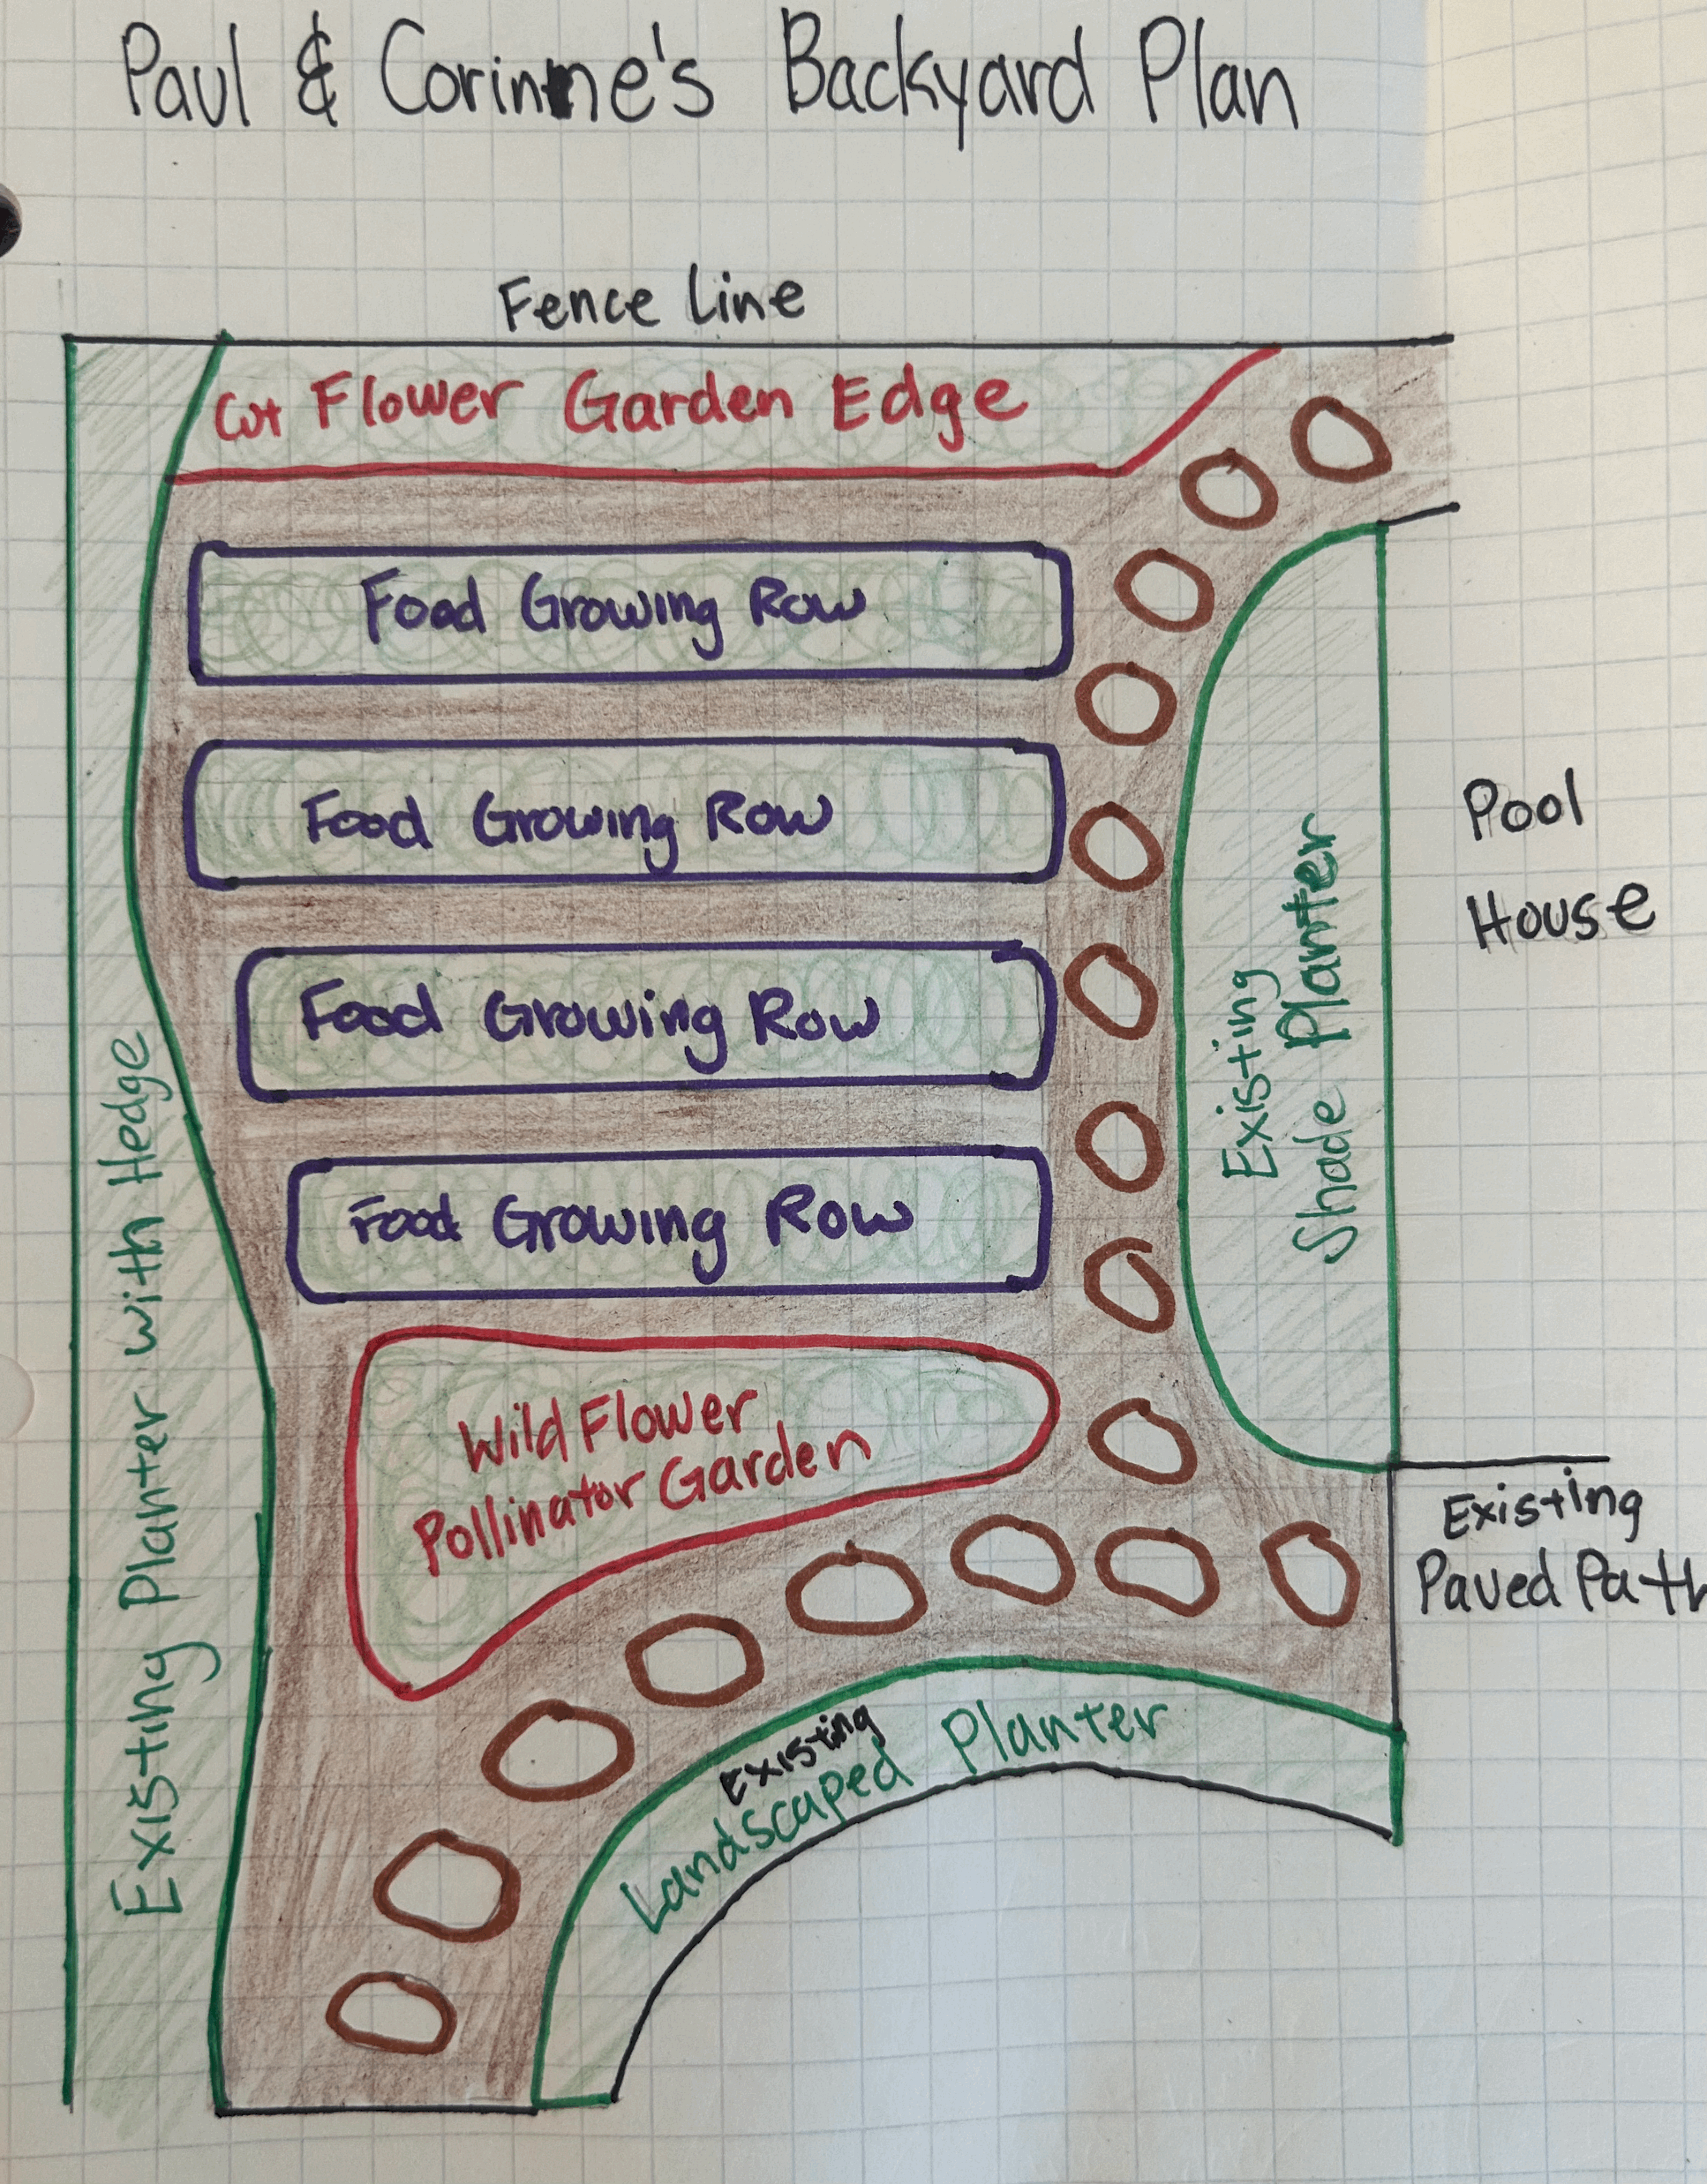 Paul & Corinne's Backyard Plan
Fence Line
Cut Flower Garden Edge
Food Growing Row
Food Growing Row
Food Growing Row
Food Growing Row
Wild Flower
Pollinator Garden
Existing Planter with Hedge
Existing
Shade Planter
Pool
House
Existing
Paved Path
Existing
Landscaped Planter